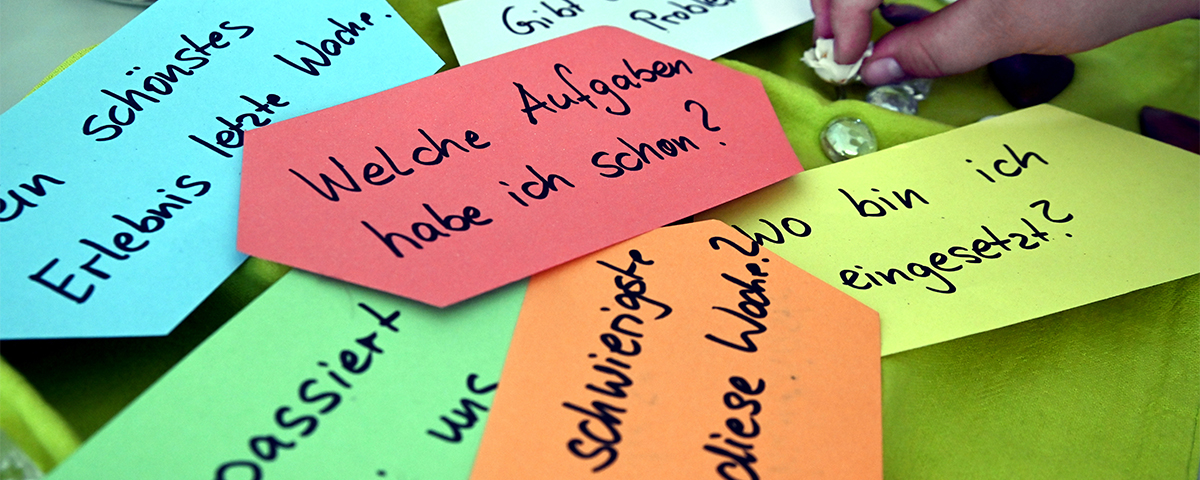 schönstes
Erlebnis letzte Woche.
Gibt
Problem
Welche Aufgaben
habe ich schon?
Wo bin ich
eingesetzt?
passiert
uns
schwierigste
diese Woche?